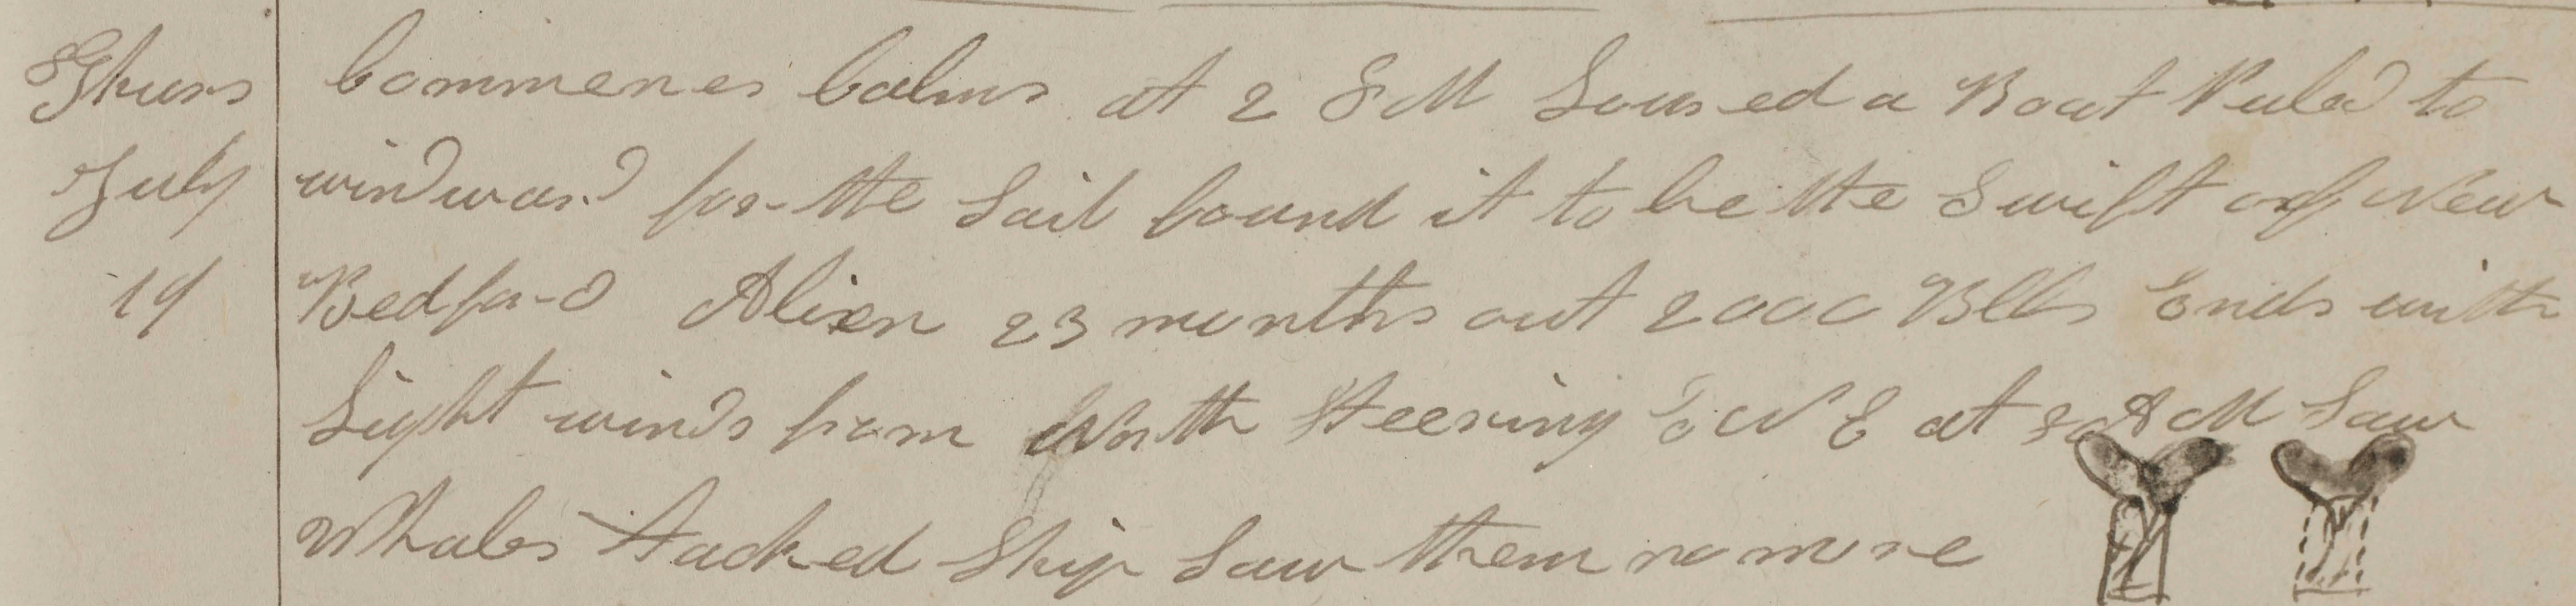 Thurs Commences Calms at 2 P M Lowered a Boat Puled to
July windward for the Sail found it to be the Swift of New
19 Bedford Alien 23 months out 2000 Blls Ends with
Light winds from North Steering To N E at 3 A M Saw
Whales tacked Ship Saw them no more